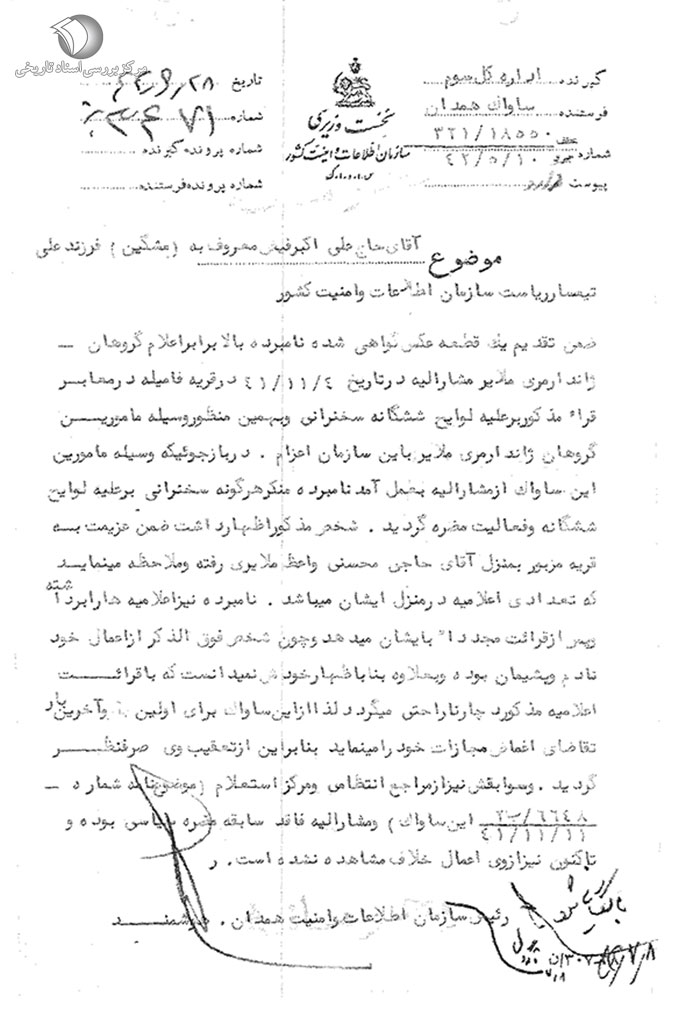 مرکز بررسی اسناد تاریخی
گیرنده اداره کل سوم
فرستنده ساواک همدان
عطف ۳۲۱/۱۸۵۵۰
شماره ۴۲/۵/۱۰
پیوست
نخست وزیری
سازمان اطلاعات و امنیت کشور
س.ا.و.ا.ک
تاریخ ۴۲/۶/۲۸
شماره
شماره پرونده گیرنده
شماره پرونده فرستنده
موضوع آقای حاج علی اکبر فیض معروف به (مشگین) فرزند علی
تیمسار ریاست سازمان اطلاعات و امنیت کشور
ضمن تقدیم یک قطعه عکس گواهی شده نامبرده بالا برابر اعلام گروهان –
ژاندارمری ملایر مشارالیه در تاریخ ۴۱/۱۱/۴ در قریه فامیله در معابر
قراء مذکور برعلیه لوایح ششگانه سخنرانی و بهمین منظور وسیله مامورین
گروهان ژاندارمری ملایر باین سازمان اعزام . در بازجوئیکه وسیله مامورین
این ساواک از مشارالیه بعمل آمد نامبرده منکر هرگونه سخنرانی برعلیه لوایح
ششگانه و فعالیت مضره گردید . شخص مذکور اظهار داشت ضمن عزیمت به
قریه مزبور بمنزل آقای حاجی محسنی واعظ ملایری رفته و ملاحظه مینماید
که تعدادی اعلامیه در منزل ایشان میباشد . نامبرده نیز اعلامیه ها را برداشته
و پس از قرائت مجدداً بایشان میدهد و چون شخص فوق الذکر از اعمال خود
نادم و پشیمان بوده و بعلاوه بنا باظهار خودش نمیدانست که با قرائت
اعلامیه مذکور دچار ناراحتی میگردد لذا از این ساواک برای اولین و آخرین بار
تقاضای اغماض مجازات خود را مینماید بنابراین از تعقیب وی صرفنظر
گردید . و سوابقش نیز از مراجع انتظامی و مرکز استعلام (موضوع نامه شماره –
۶۶۴۸/ب۳ ۴۱/۱۱/۱۱ این ساواک) و مشارالیه فاقد سابقه مضره سیاسی بوده و
تاکنون نیز از وی اعمال خلاف مشاهده نشده است . ر
رئیس سازمان اطلاعات و امنیت همدان . هوشمند
بایگانی شود